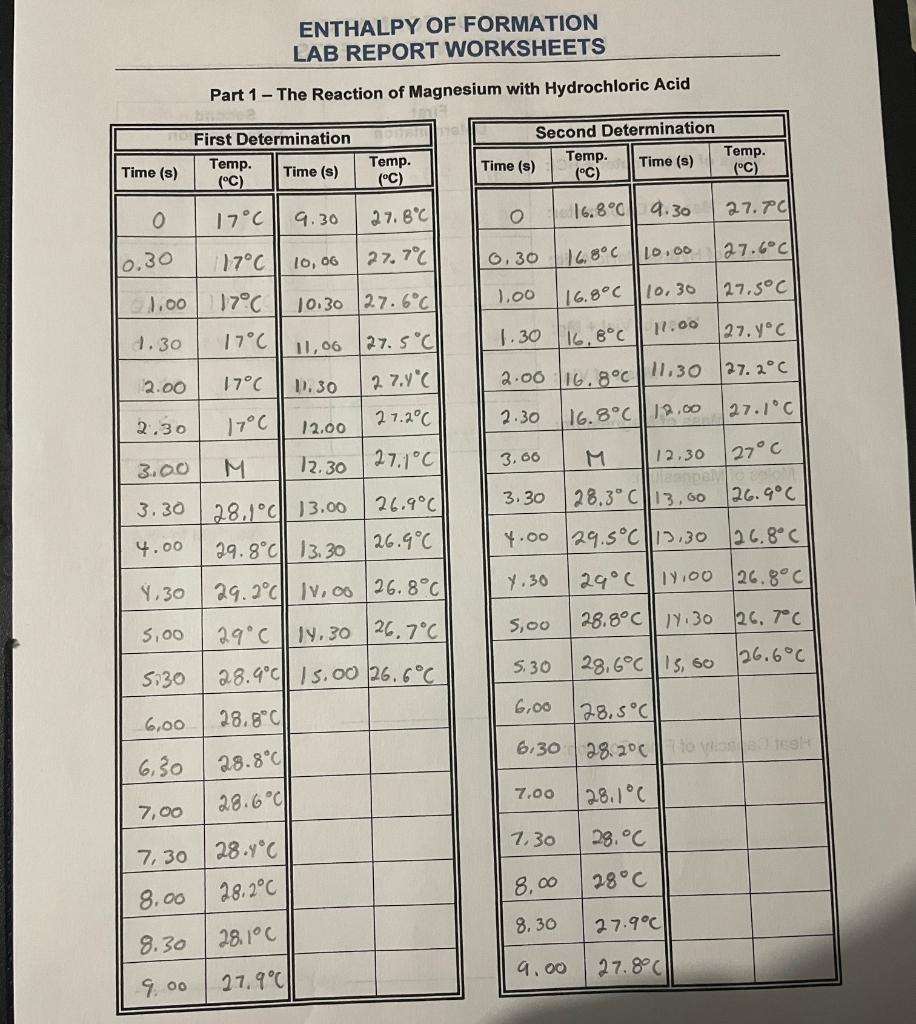 ENTHALPY OF FORMATION
LAB REPORT WORKSHEETS
Part 1 – The Reaction of Magnesium with Hydrochloric Acid
First Determination
Time (s) Temp. (ºC) Time (s) Temp. (ºC)
0 17°C 9.30 27.8°C
0.30 17°C 10,00 27.7°C
1.00 17°C 10.30 27.6°C
1.30 17°C 11,00 27.5°C
2.00 17°C 11.30 27.4°C
2.30 17°C 12.00 27.2°C
3.00 M 12.30 27.1°C
3.30 28.1°C 13.00 26.9°C
4.00 29.8°C 13.30 26.9°C
4.30 29.2°C 14,00 26.8°C
5,00 29°C 14.30 26.7°C
5:30 28.9°C 15.00 26.6°C
6,00 28.8°C
6,30 28.8°C
7,00 28.6°C
7,30 28.4°C
8.00 28.2°C
8.30 28.1°C
9.00 27.9°C
Second Determination
Time (s) Temp. (ºC) Time (s) Temp. (ºC)
0 16.8°C 9.30 27.7°C
0.30 16.8°C 10.00 27.6°C
1.00 16.8°C 10,30 27.5°C
1.30 16.8°C 11.00 27.4°C
2.00 16.8°C 11,30 27.2°C
2.30 16.8°C 12,00 27.1°C
3,00 M 12,30 27°C
3.30 28.3°C 13,00 26.9°C
4.00 29.5°C 13,30 26.8°C
4.30 29°C 14,00 26.8°C
5,00 28.8°C 14.30 26.7°C
5.30 28,6°C 15,00 26.6°C
6,00 28.5°C
6,30 28.2°C
7.00 28.1°C
7.30 28.°C
8,00 28°C
8,30 27.9°C
9.00 27.8°C